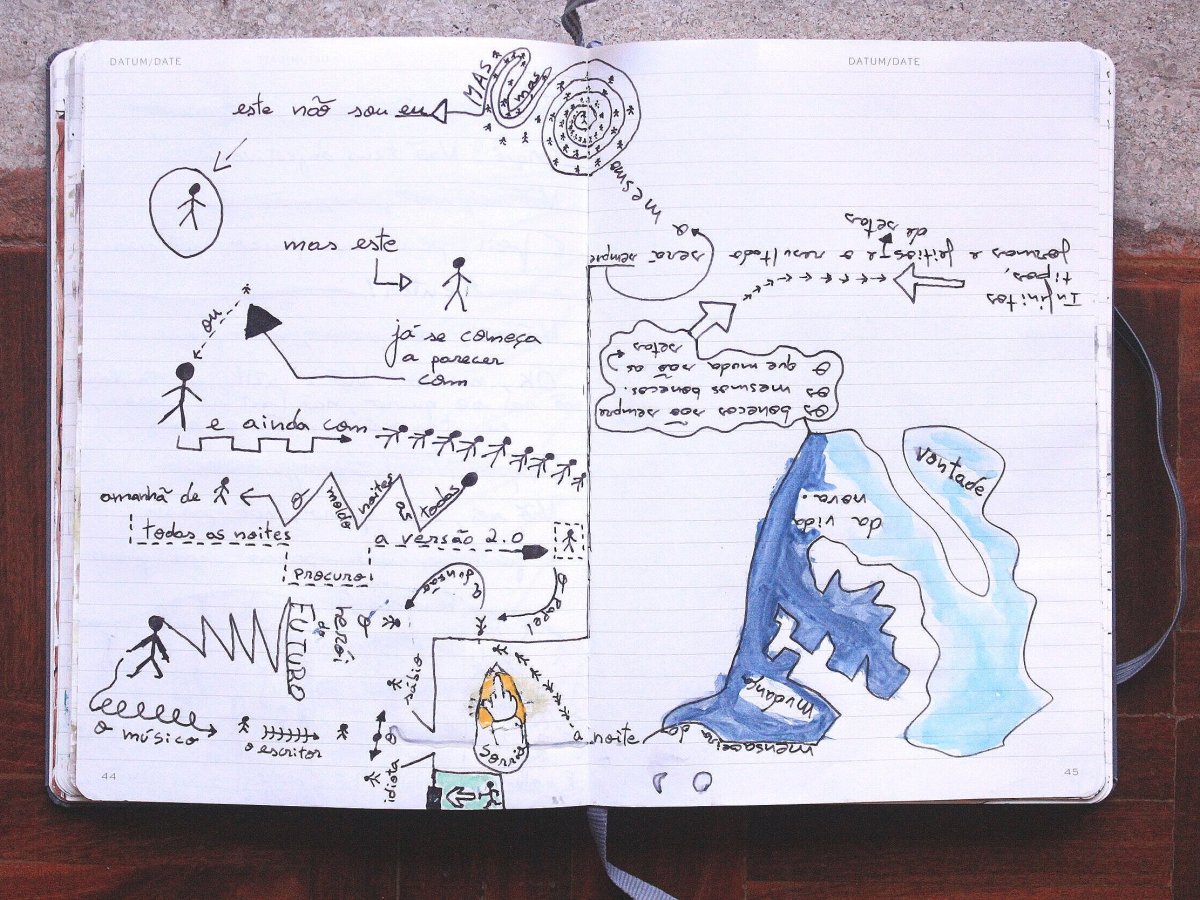 DATUM/DATE
DATUM/DATE
este não sou eu
MAS
mas
mesmo
a
será sempre
mas este
já se começa
a parecer
com
ou
e ainda com
amanhã de
O
moldo
noites
as
todas
todas as noites
procuro
a versão 2.0
o papel
a
O
herói
do
FUTURO
o músico
o escritor
sábio
O
idiota
Sorrio
a noite
mensageira da
mudança
da vida
nova.
vontade
Os bonecos são sempre
os mesmos bonecos.
O que muda são as
setas
Infinitos
tipos,
formas e feitios e o resultado
de setas
44
45